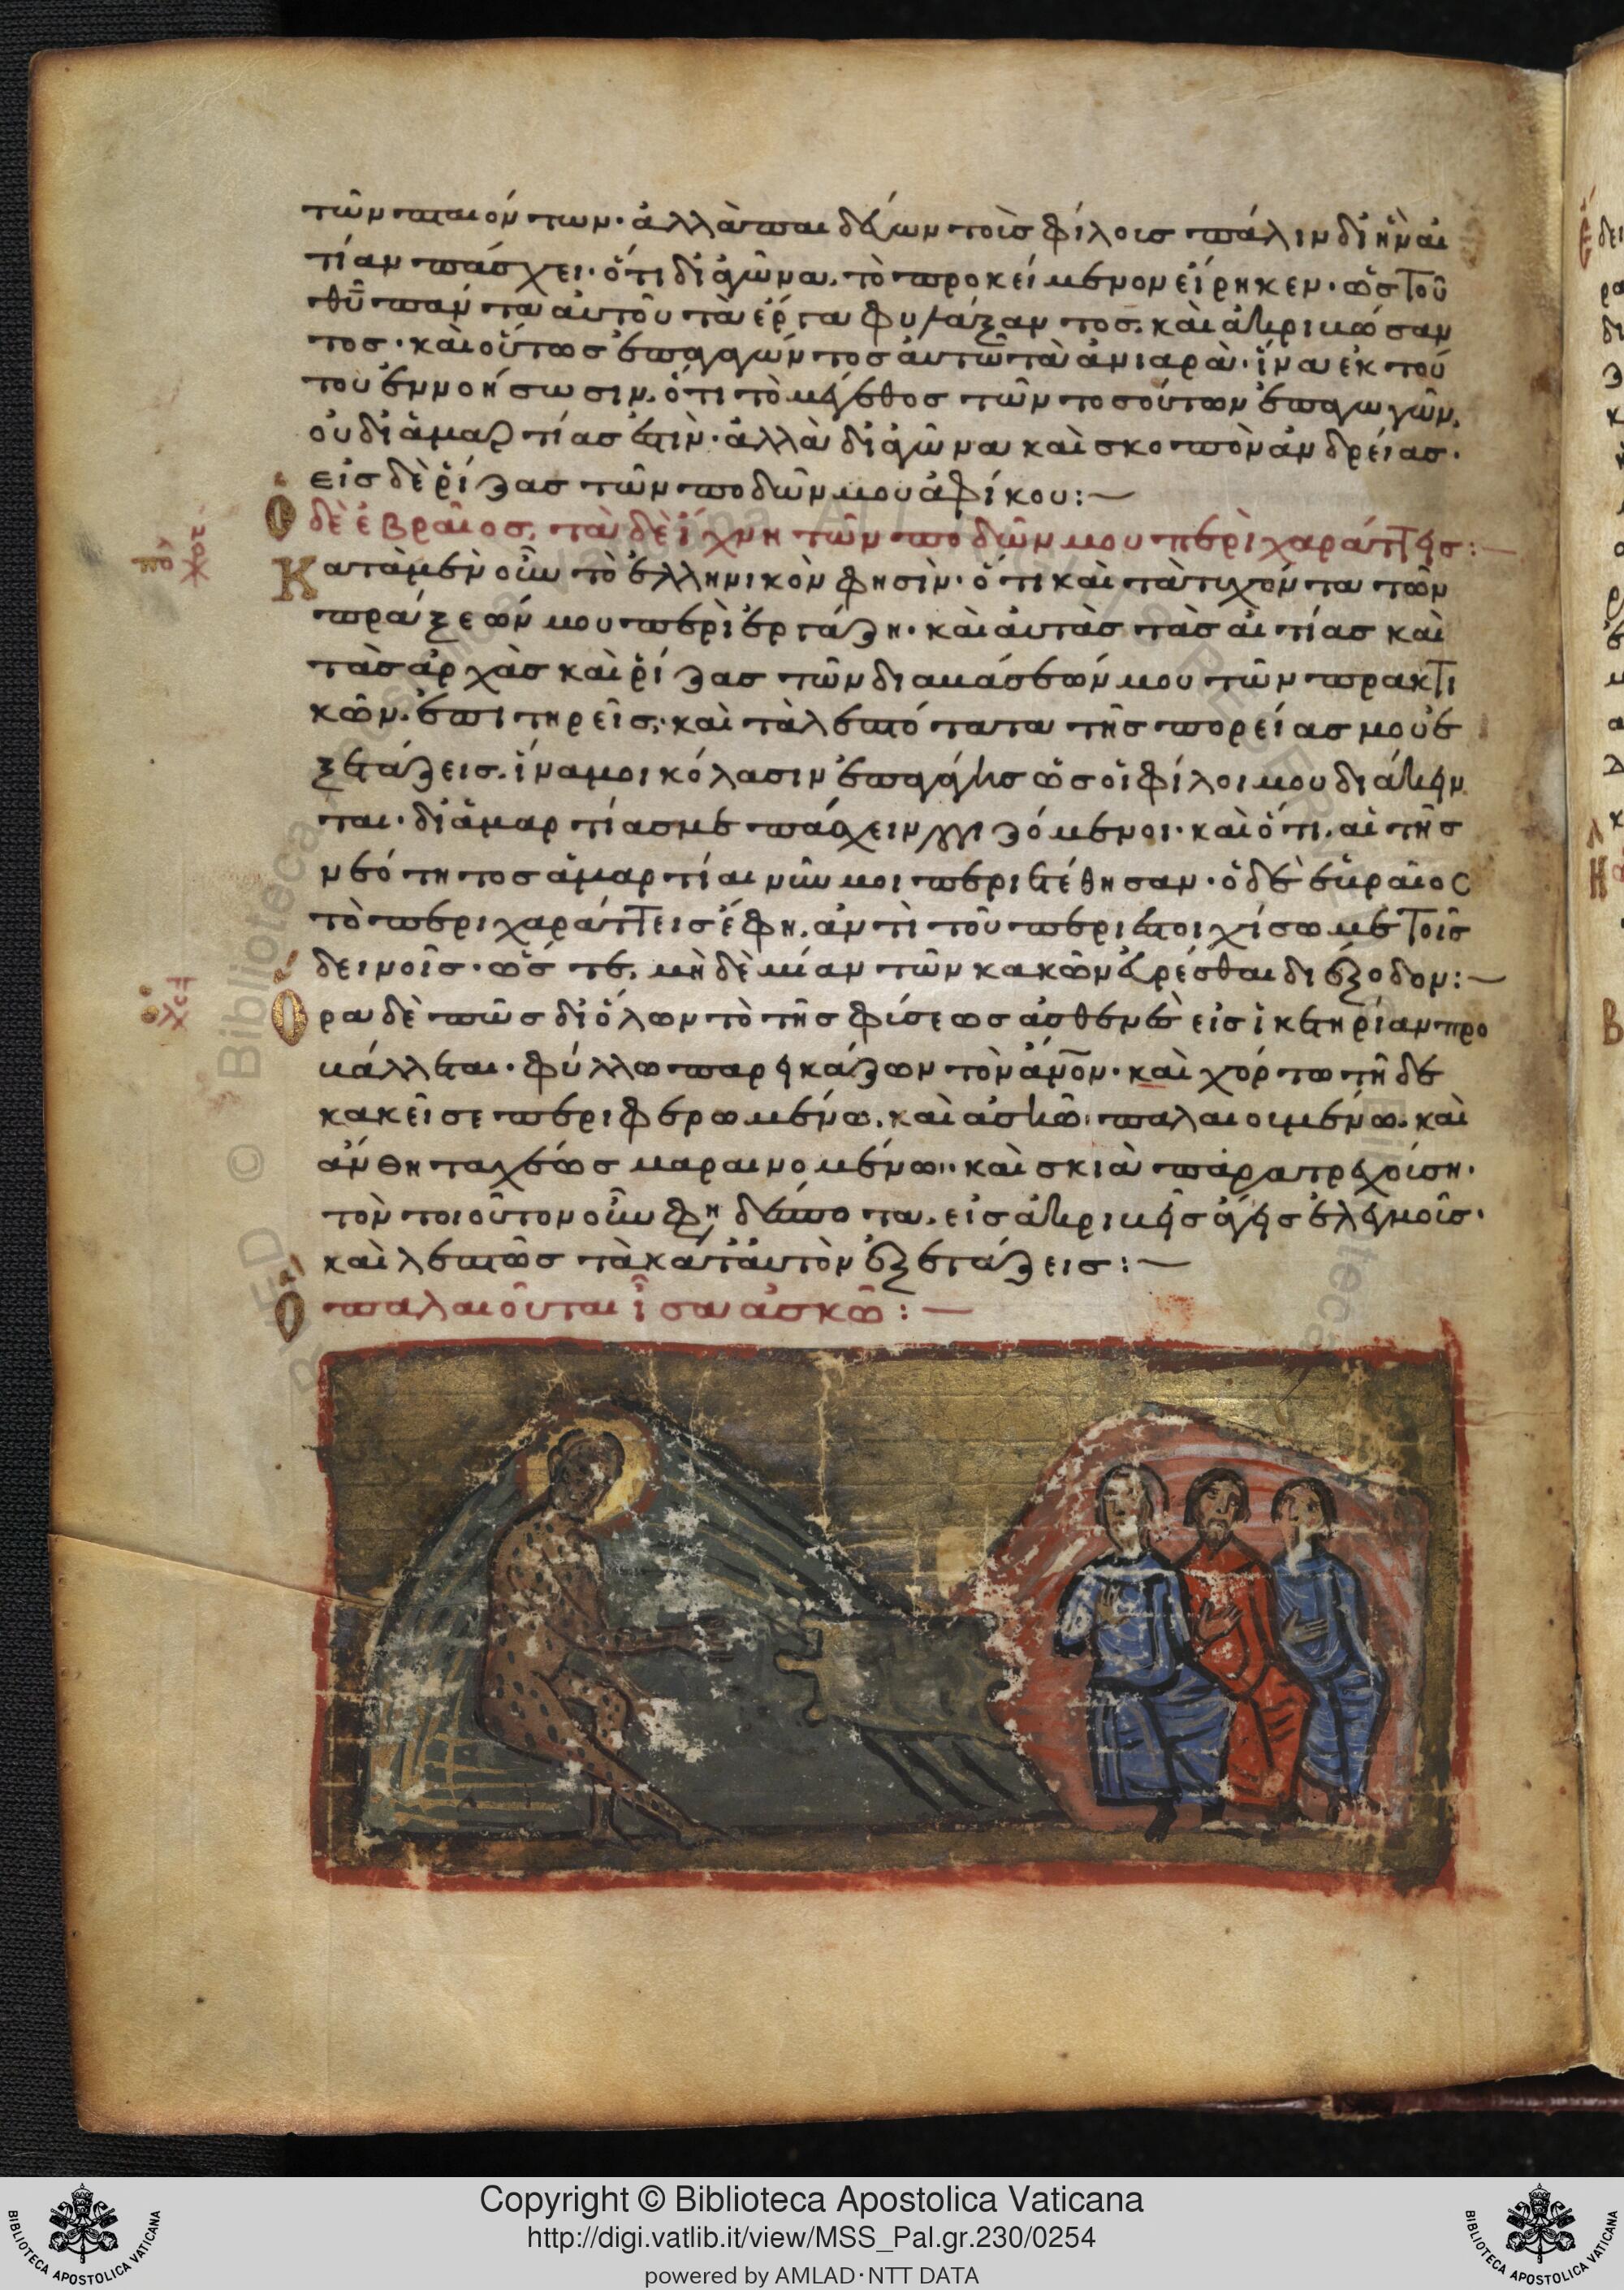 τῶν πταιόντων· ἀλλὰ παιδεύων τοὺς φίλους πάλιν δι' ἣν αἰ
τίαν πάσχει· ὅτι δι' ἀγῶνα, τὸ προκείμενον εἴρηκεν· ὡς τοῦ
θῦ πάντα αὐτοῦ τὰ ἔργα φυλάξαντος, καὶ ἀκριβώσαν
τος· καὶ οὕτως ἐπαγαγόντος αὐτῶ τὰ ἀνιαρὰ· ἵνα ἐκ τού
του ἐννοήσωσιν, ὅτι τὸ μέγεθος τῶν τοσούτων ἐπαγωγῶν,
οὐ δι' ἁμαρτίας ἐστὶν· ἀλλὰ δι' ἀγῶνα καὶ σκοπὸν ἀνδρείας·
εἰς δὲ ῥίζας τῶν ποδῶν μου ἀφίκου:
Ὁ δὲ ἑβραῖος, τὰ δὲ ἴχνη τῶν ποδῶν μου περιχαράττεις:
Κατὰ μὲν οὖν τὸ ἑλληνικὸν φησὶν· ὅτι καὶ τὰ τυχόντα τῶν
πράξεών μου περιεργάζη· καὶ αὐτὰς τὰς αἰτίας καὶ
τὰς ἀρχὰς καὶ ῥίζας τῶν διαβάσεών μου τῶν πρακτι
κῶν, ἐπιτηρεῖς, καὶ τὰ λεπτότατα τῆς πορείας μου ἐ
ξετάζεις, ἵνα μοι κόλασιν ἐπαγάγης ὡς οἱ φίλοι μου διάκειν
ται· δι' ἁμαρτίας με πάσχειν λογιζόμενοι· καὶ ὅτι, αἱ τῆς
νεότητος ἁμαρτίαι νῦν μοι περιετέθησαν· ὁ δὲ ἑβραῖος
τὸ περιχαράττεις ἔφη, ἀντὶ τοῦ περιεστοίχισω με τοῖς
δεινοῖς· ὥς τε, μὴδὲ μίαν τῶν κακῶν εὑρέσθαι διέξοδον:
Ὅρα δὲ πῶς δι' ὅλων τὸ τῆς φύσεως ἀσθενὲς εἰς ἱκετηρίαν προ
βάλλεται· φύλλω παρεικάζων τὸν ἄνον· καὶ χόρτω τῆδε
κακεῖσε περιφερωμένω, καὶ ἀσκῶ παλαιουμένω, καὶ
ἄνθη ταχέως μαραινομένω· καὶ σκιᾶ παρατρεχούση·
τὸν τοιοῦτον οὖν φη δέσποτα, εἰς ἀκριβεῖς ἄγεις ἐλεγμοὺς·
καὶ λεπτῶς τὰ κατ' αὐτὸν ἐξετάζεις:
Ὃ παλαιοῦται ἶσα ἀσκῶ:
RED © Biblioteca Apostolica Vaticana
BIBLIOTECA APOSTOLICA VATICANA
Copyright © Biblioteca Apostolica Vaticana
http://digi.vatlib.it/view/MSS_Pal.gr.230/0254
powered by AMLAD·NTT DATA
BIBLIOTECA APOSTOLICA VATICANA